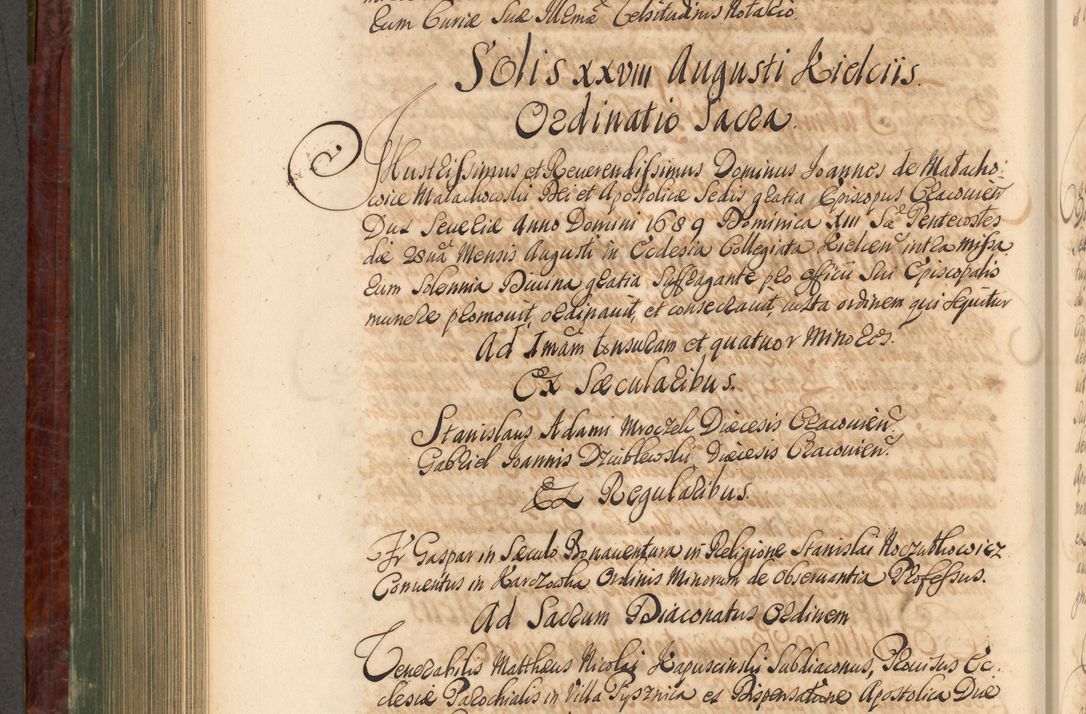 Eum Curiæ Suæ Illmæ Celsitudinis Notario.
Solis XXVIII Augusti Kielciis.
Ordinatio Sacra.
Illustrissimus et Reverendissimus Dominus Joannes de Malacho-
wice Malachowski Dei et Apostolicæ Sedis gratia Episcopus Cracovien
Dux Severiæ Anno Domini 1689 Dominica XIII Sæ Pentecostes
die 28va Mensis Augusti in Ecclesia Collegiata Kielcen intra missa
rum Solemnia Divina gratia Suffragante pro officii Sui Episcopalis
munere promovit, ordinavit, et consecravit, iuxta ordinem qui sequitur
Ad Imam tonsuram et quatuor Minores.
Ex Sæcularibus.
Stanislaus Adami Mroczek Diæcesis Cracovien
Gabriel Joannis Dziublewski Diæcesis Cracovien
Ex Regularibus.
Fr Gaspar in Sæculo Bonaventura in Religione Stanislai Koczubkowicz
Conventus in Karczowka Ordinis Minorum de Observantia Professus.
Ad Sacrum Diaconatus Ordinem
Venerabilis Matthæus Nicolai Kapuscinski Subdiaconus, Provisus Ec-
clesiæ Parochialis in Villa Pysznica et Dispensatione Apostolica Duæ